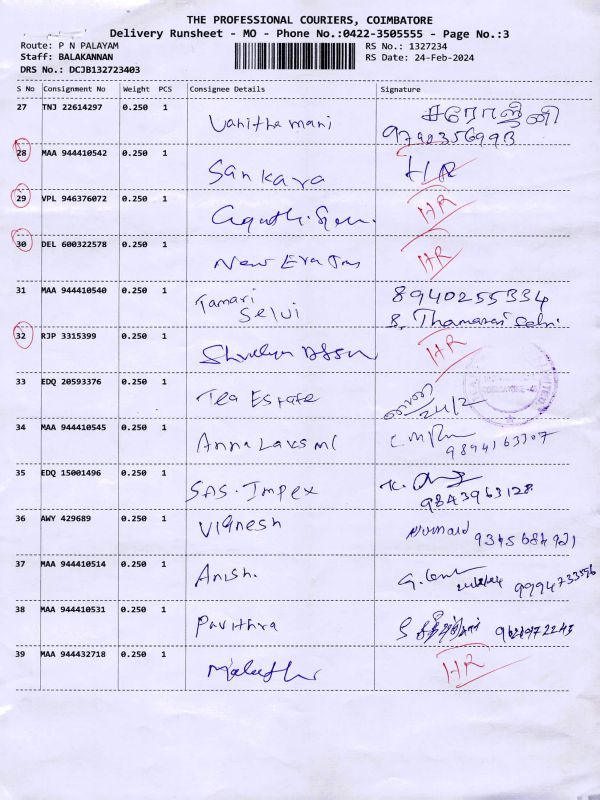 THE PROFESSIONAL COURIERS, COIMBATORE
Delivery Runsheet - MO - Phone No.:0422-3505555 - Page No.:3
Route: P N PALAYAM
RS No.: 1327234
Staff: BALAKANNAN
RS Date: 24-Feb-2024
DRS No.: DCJB132723403
S No Consignment No Weight PCS Consignee Details Signature
27 TNJ 22614297 0.250 1 Vanitha mani சரோஜினி
28 MAA 944410542 0.250 1 Sankara HR
29 VPL 946376072 0.250 1 HR
30 DEL 600322578 0.250 1 New Era HR
31 MAA 944410540 0.250 1 Tamari Selvi 8940255334
32 RJP 3315399 0.250 1 HR
33 EDQ 20593376 0.250 1 Tea Estate 24/2
34 MAA 944410545 0.250 1 Anna Laxsmi 9894163307
35 EDQ 15001496 0.250 1 SAS. Impex 9843963128
36 AWY 429689 0.250 1 Vignesh 9345684921
37 MAA 944410514 0.250 1 Anish. 9994733596
38 MAA 944410531 0.250 1 Pavithra
39 MAA 944432718 0.250 1 HR